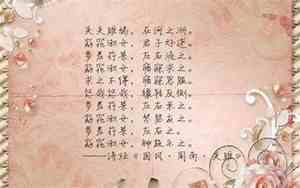 关关雎鸠，在河之洲。
窈窕淑女，君子好逑。
参差荇菜，左右流之。
窈窕淑女，寤寐求之。
求之不得，寤寐思服。
悠哉悠哉，辗转反侧。
参差荇菜，左右采之。
窈窕淑女，琴瑟友之。
参差荇菜，左右芼之。
窈窕淑女，钟鼓乐之。
——诗经《国风·周南·关雎》